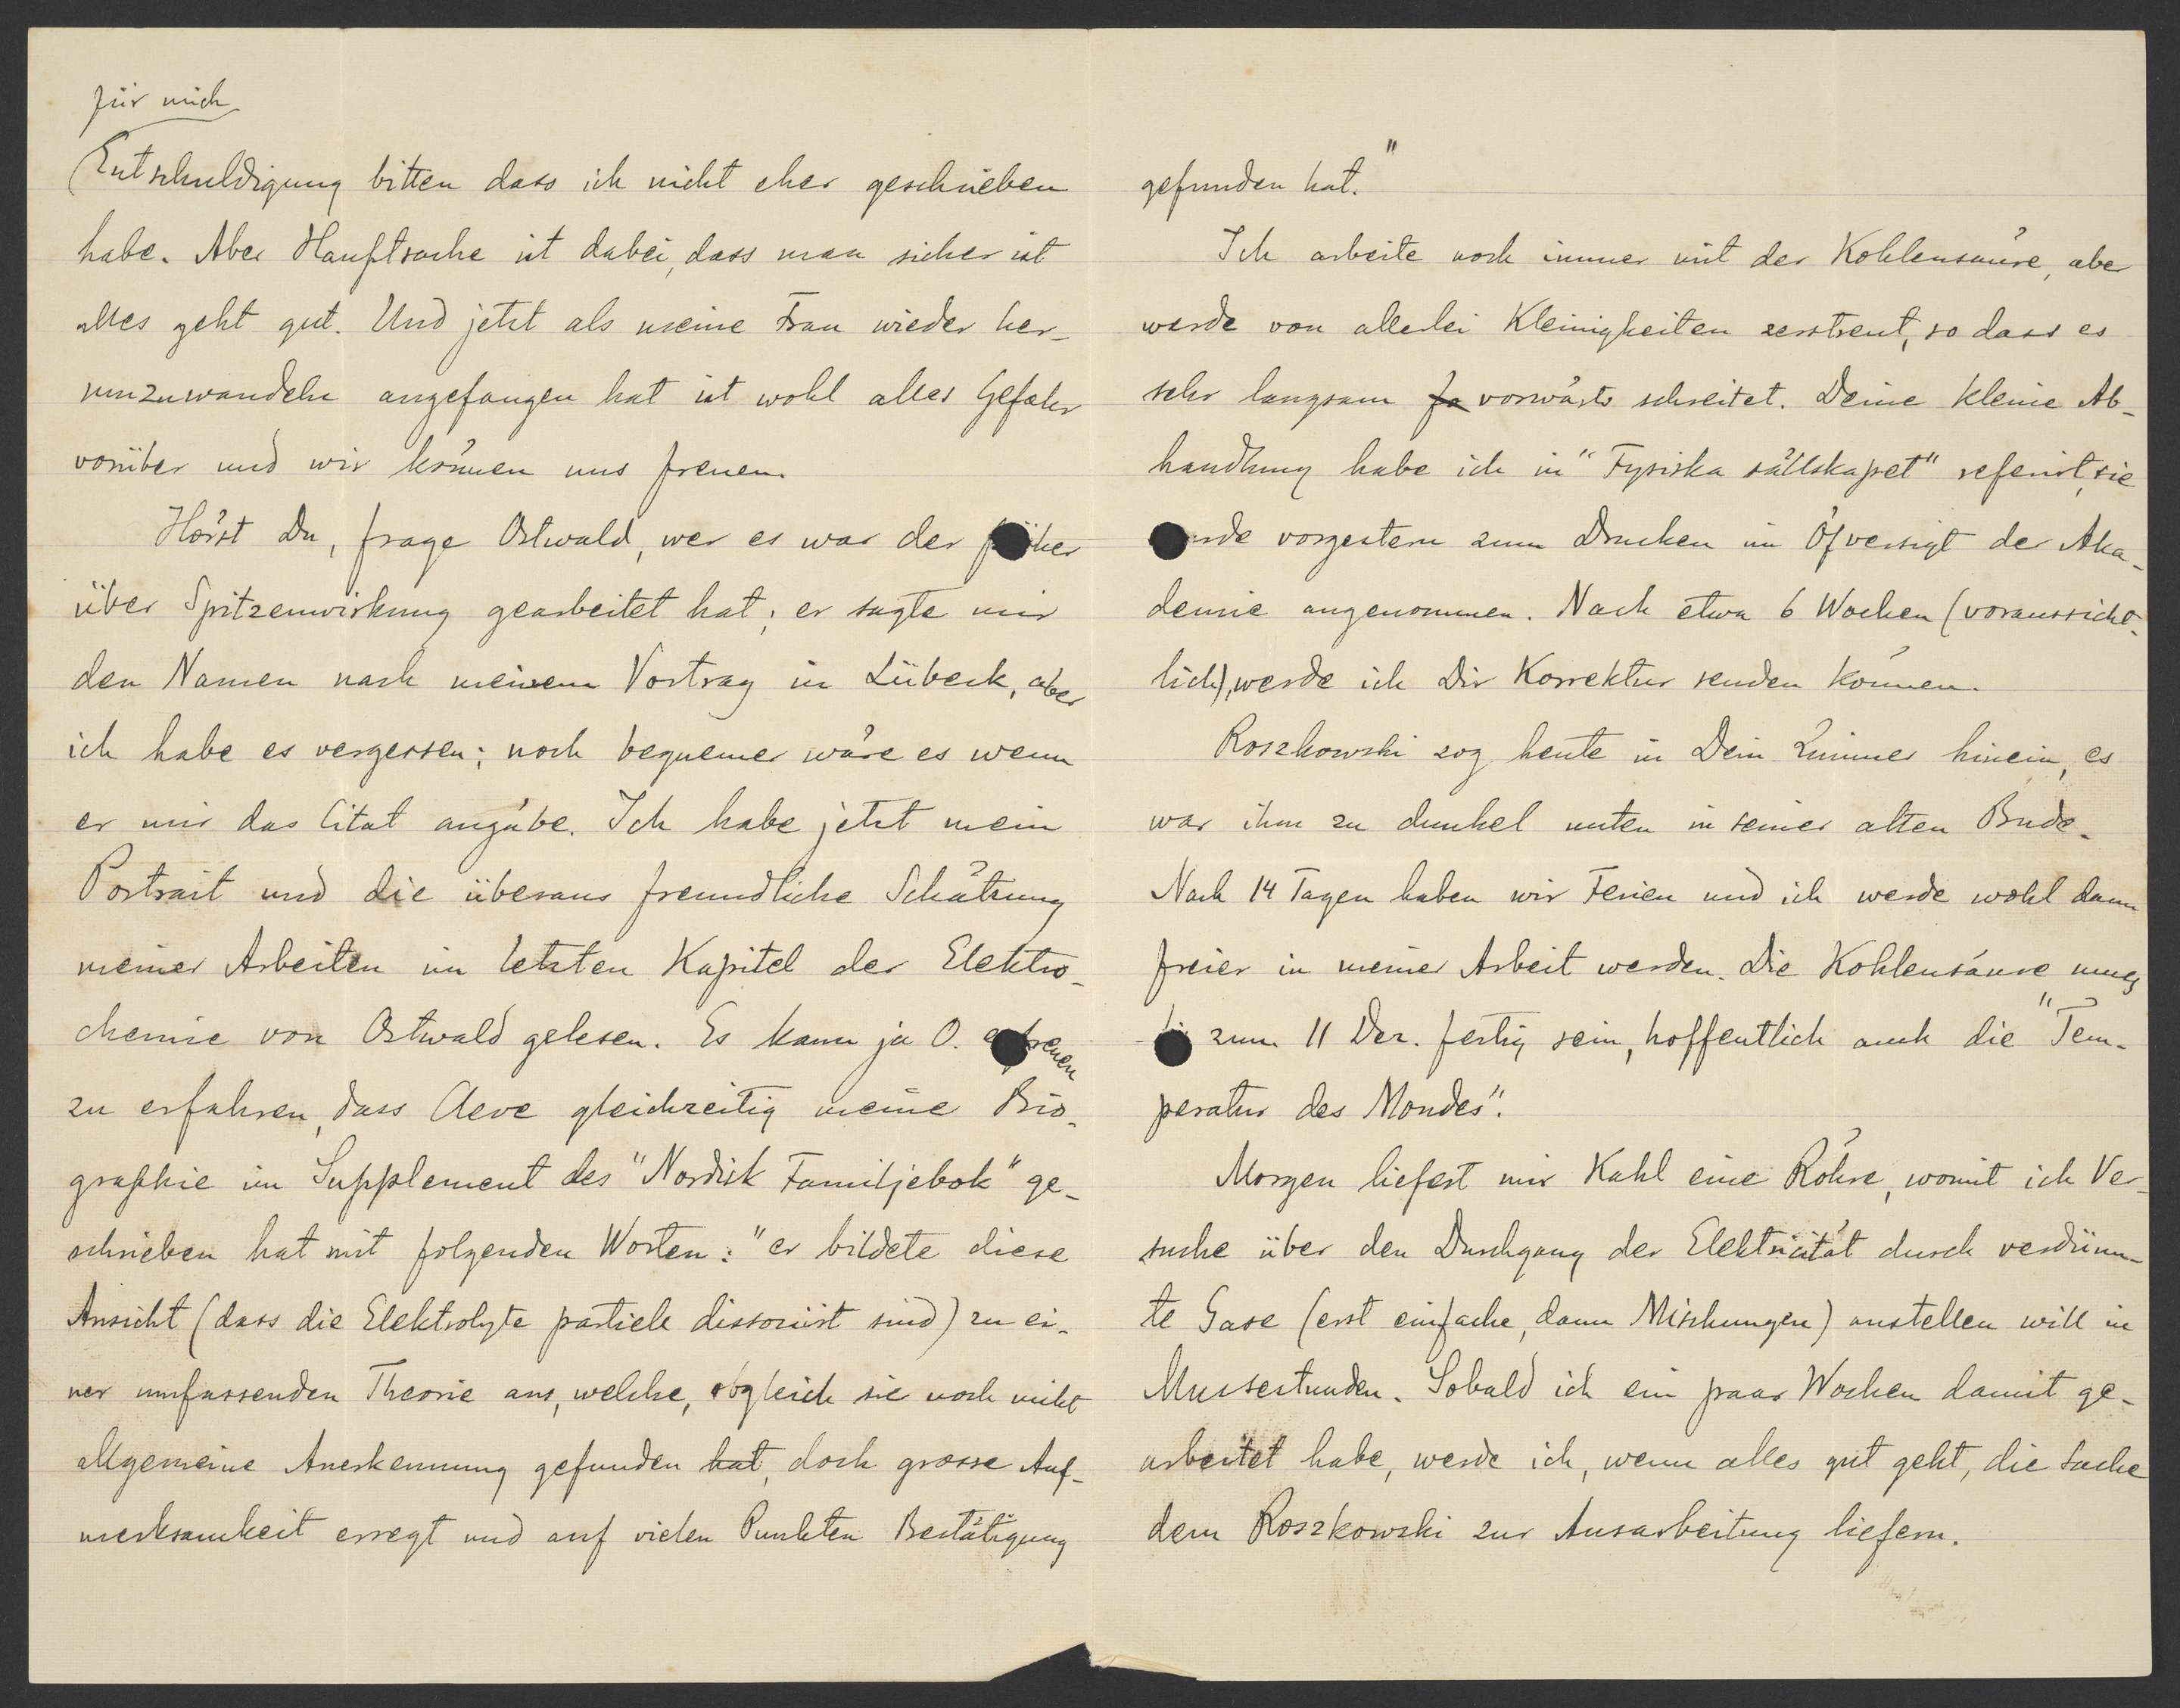 für mich
Entschuldigung bitten dass ich nicht eher geschrieben
habe. Aber Hauptsache ist dabei, dass man sicher ist
alles geht gut. Und jetzt als meine Frau wieder her-
umzuwandeln angefangen hat ist wohl alles Gefahr
vorüber und wir können uns freuen.
Hörst Du, frage Ostwald, wer es war der früher
über Spitzenwirkung gearbeitet hat; er sagte mir
den Namen nach meinem Vortrag in Lübeck, aber
ich habe es vergessen; noch bequemer wäre es wenn
er mir das Citat angäbe. Ich habe jetzt mein
Portrait und die überaus freundliche Schätzung
meiner Arbeiten im letzten Kapitel der Elektro-
chemie von Ostwald gelesen. Es kann ja O. erfreuen
zu erfahren, dass Cleve gleichzeitig meine Bio-
graphie im Supplement des "Nordisk Familjebok" ge-
schrieben hat mit folgenden Worten: "er bildete diese
Ansicht (dass die Elektrolyte partiell dissociirt sind) zu ei-
ner umfassenden Theorie aus, welche, obgleich sie noch nicht
allgemeine Anerkennung gefunden hat, doch grosse Auf-
merksamkeit erregt und auf vielen Punkten Bestätigung
gefunden hat."
Ich arbeite noch immer mit der Kohlensäure, aber
werde von allerlei Kleinigkeiten zerstreut, so dass es
sehr langsam fo vorwärts schreitet. Deine kleine Ab-
handlung habe ich in "Fysiska sällskapet" referirt, sie
wurde vorgestern zum Drucken im Öfversigt der Aka-
demie angenommen. Nach etwa 6 Wochen (voraussicht-
lich), werde ich Dir Korrektur senden können.
Roszkowski zog heute in Dein Zimmer hinein, es
war ihm zu dunkel unten in seiner alten Bude.
Nach 14 Tagen haben wir Ferien und ich werde wohl dann
freier in meiner Arbeit werden. Die Kohlensäure muss
bis zum 11 Dez. fertig sein, hoffentlich auch die "Tem-
peratur des Mondes".
Morgen liefert mir Kahl eine Röhre, womit ich Ver-
suche über den Durchgang der Elektricität durch verdünn-
te Gase (erst einfache, dann Mischungen) anstellen will in
Mussestunden. Sobald ich ein paar Wochen damit ge-
arbeitet habe, werde ich, wenn alles gut geht, die Sache
dem Roszkowski zur Ausarbeitung liefern.